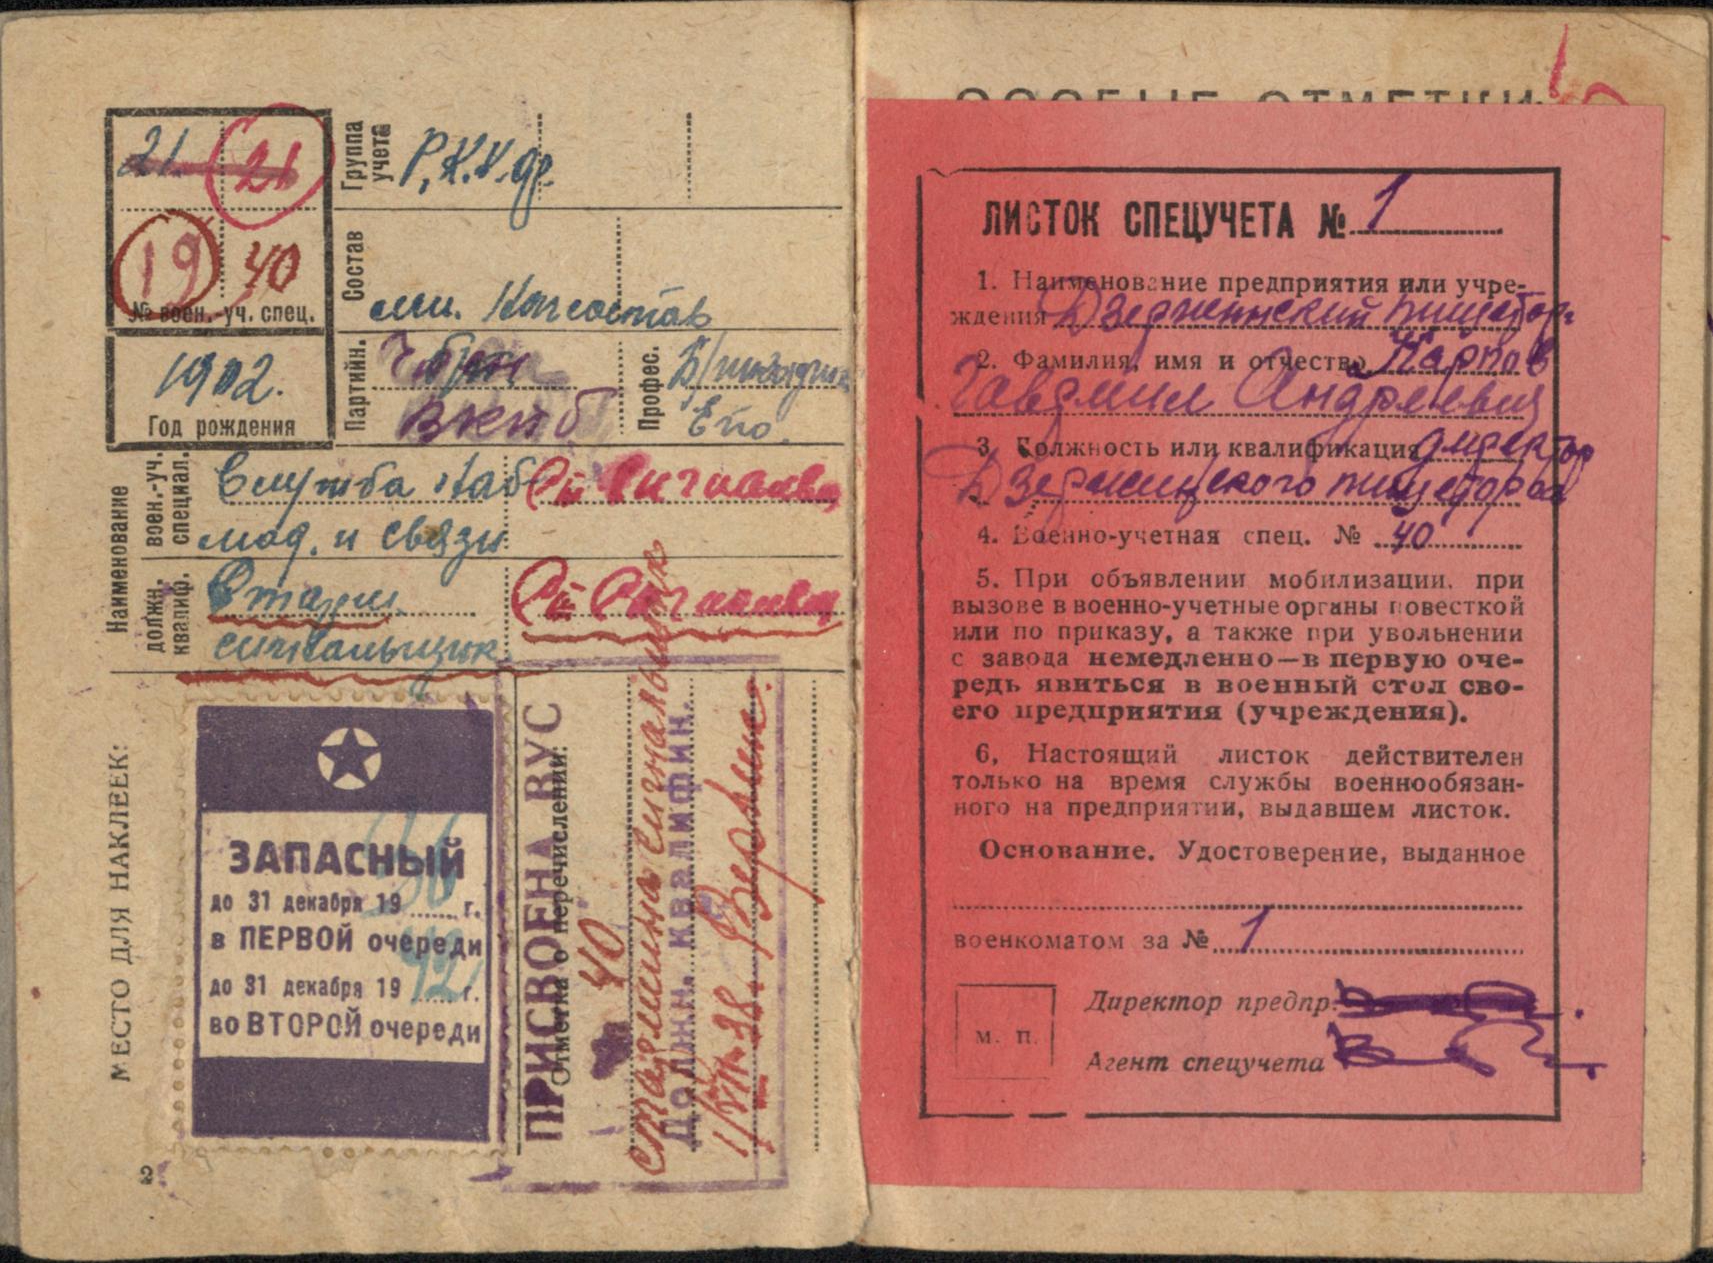 21. 21
19 40
№ воен.-уч. спец.
1902.
Год рождения
Группа учета
Состав
мл. Начсостав
Партийн.
ВКПб
Профес.
Наименование
воен.-уч. специал.
Служба Наб
люд. и связи
должн. квалиф.
Старш.
сигнальщик
МЕСТО ДЛЯ НАКЛЕЕК:
ЗАПАСНЫЙ
до 31 декабря 19 36 г.
в ПЕРВОЙ очереди
до 31 декабря 19 42 г.
во ВТОРОЙ очереди
Отметка о перечислении:
ПРИСВОЕНА ВУС
40
старшина сигнальщик
Должн. квалифик.
2
ОСОБЫЕ ОТМЕТКИ
ЛИСТОК СПЕЦУЧЕТА № 1
1. Наименование предприятия или учре-
ждения Дзержинский пищеторг
2. Фамилия, имя и отчество Карпов
Гавриил Андреевич
3. Должность или квалификация директор
Дзержинского пищеторга
4. Военно-учетная спец. № 40
5. При объявлении мобилизации, при
вызове в военно-учетные органы повесткой
или по приказу, а также при увольнении
с завода немедленно—в первую оче-
редь явиться в военный стол сво-
его предприятия (учреждения).
6, Настоящий листок действителен
только на время службы военнообязан-
ного на предприятии, выдавшем листок.
Основание. Удостоверение, выданное
военкоматом за № 1
Директор предпр.
м. п.
Агент спецучета